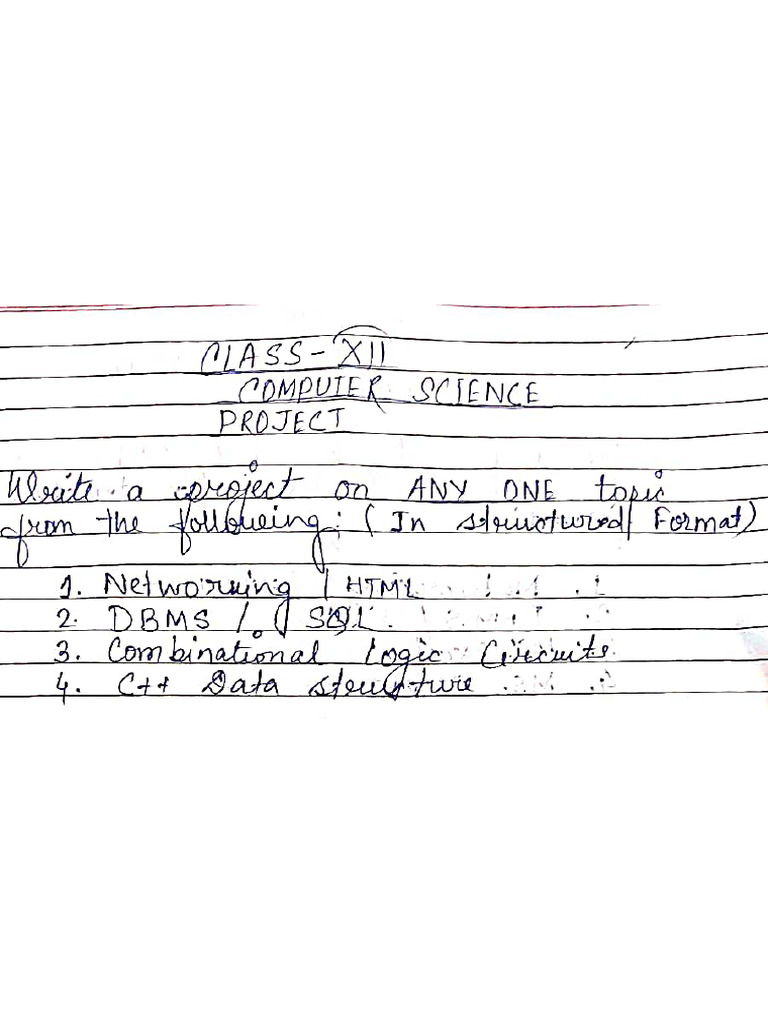 CLASS - XII
COMPUTER SCIENCE
PROJECT
Write a project on ANY ONE topic
from the following: (In structured Format)
1. Networking / HTML
2. DBMS / SQL
3. Combinational Logic Circuits
4. C++ Data structure